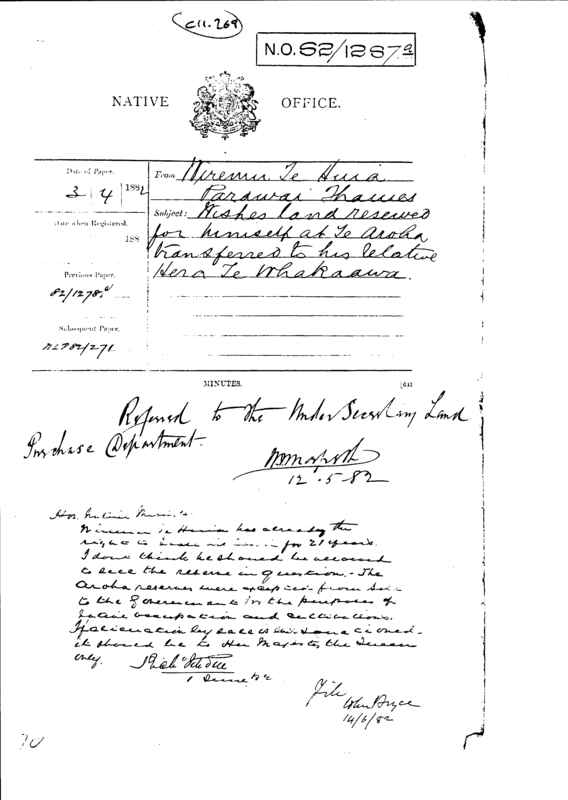 C11.269
N.O. 82/1287 a
NATIVE OFFICE.
Date of Paper.
3 | 4 | 1882
Date when Registered.
188
Previous Paper.
82/1278
Subsequent Paper.
NLP82/271
From Wiremu Te Huia
Parawai Thames
Subject: Wishes land reserved
for himself at Te Aroha
transferred to his relative
Hera Te Whakaawa.
MINUTES.
Referred to the Under Secretary Land
Purchase Department.
12.5.82
Hon. Native
Wiremu te Huia has already the
right to for 21 years.
I dont think he should be allowed
to sell the reserve in question. The
Aroha reserves were excepted from sale
to the Government for the purposes of
Native occupation and cultivation.
If alienation by sale is
it should be to Her Majesty the Queen
only.
1 June 82
File
John Bryce
14/6/82